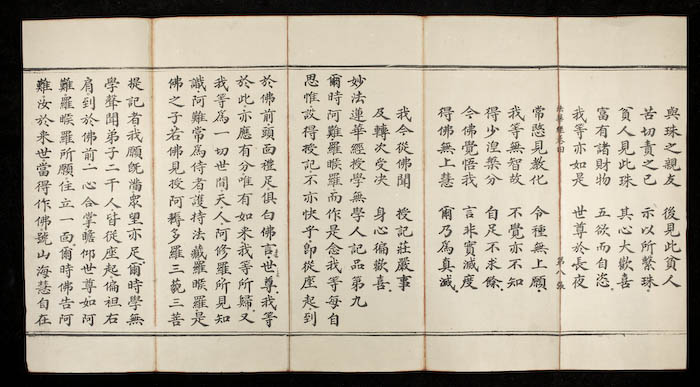 與珠之親友 後見此貧人
苦切責之已 示以所繫珠
貧人見此珠 其心大歡喜
富有諸財物 五欲而自恣
我等亦如是 世尊於長夜
法華經卷四 第八張
常愍見教化 令種無上願
我等無智故 不覺亦不知
得少涅槃分 自足不求餘
今佛覺悟我 言非實滅度
得佛無上慧 爾乃為真滅
我今從佛聞 授記莊嚴事
及轉次受決 身心徧歡喜
妙法蓮華經授學無學人記品第九
爾時阿難羅睺羅而作是念我等每自
思惟設得授記不亦快乎即從座起到
於佛前頭面禮足俱白佛言世尊我等
於此亦應有分唯有如來我等所歸又
我等為一切世間天人阿修羅所見知
識阿難常為侍者護持法藏羅睺羅是
佛之子若佛見授阿耨多羅三藐三菩
提記者我願既滿眾望亦足爾時學無
學聲聞弟子二千人皆從座起偏袒右
肩到於佛前一心合掌瞻仰世尊如阿
難羅睺羅所願住立一面爾時佛告阿
難汝於來世當得作佛號山海慧自在